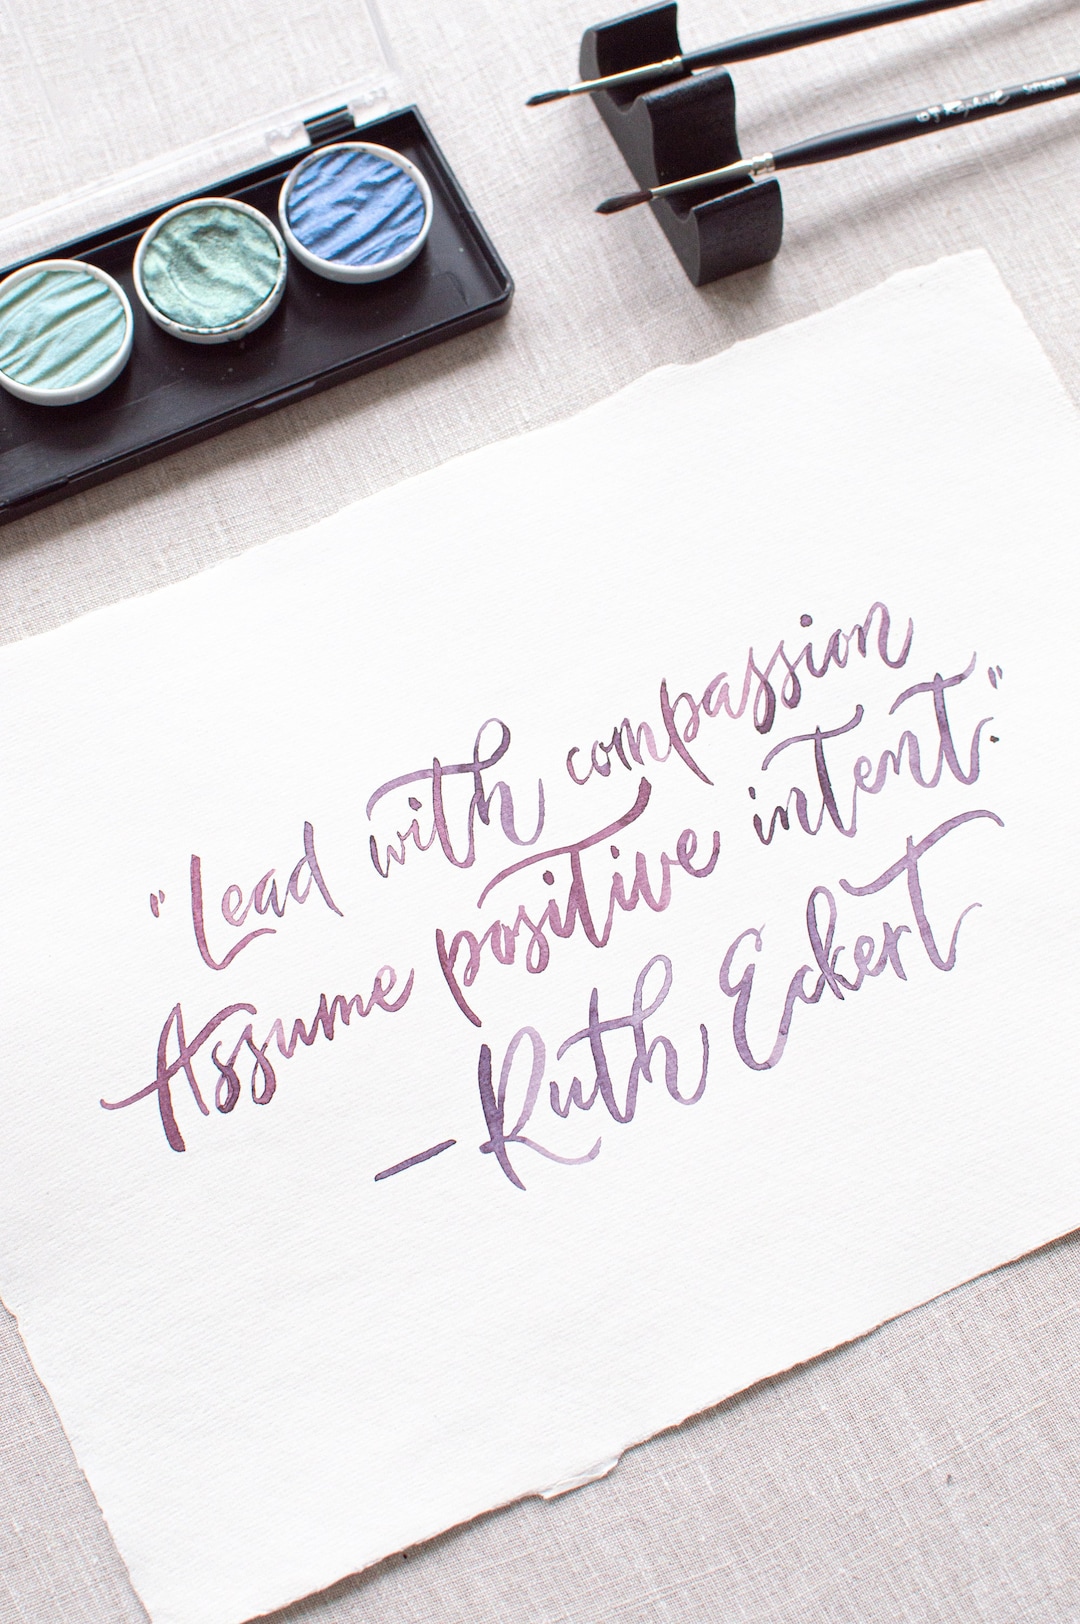 Raphaël
"Lead with compassion
Assume positive intent."
— Ruth Eckert